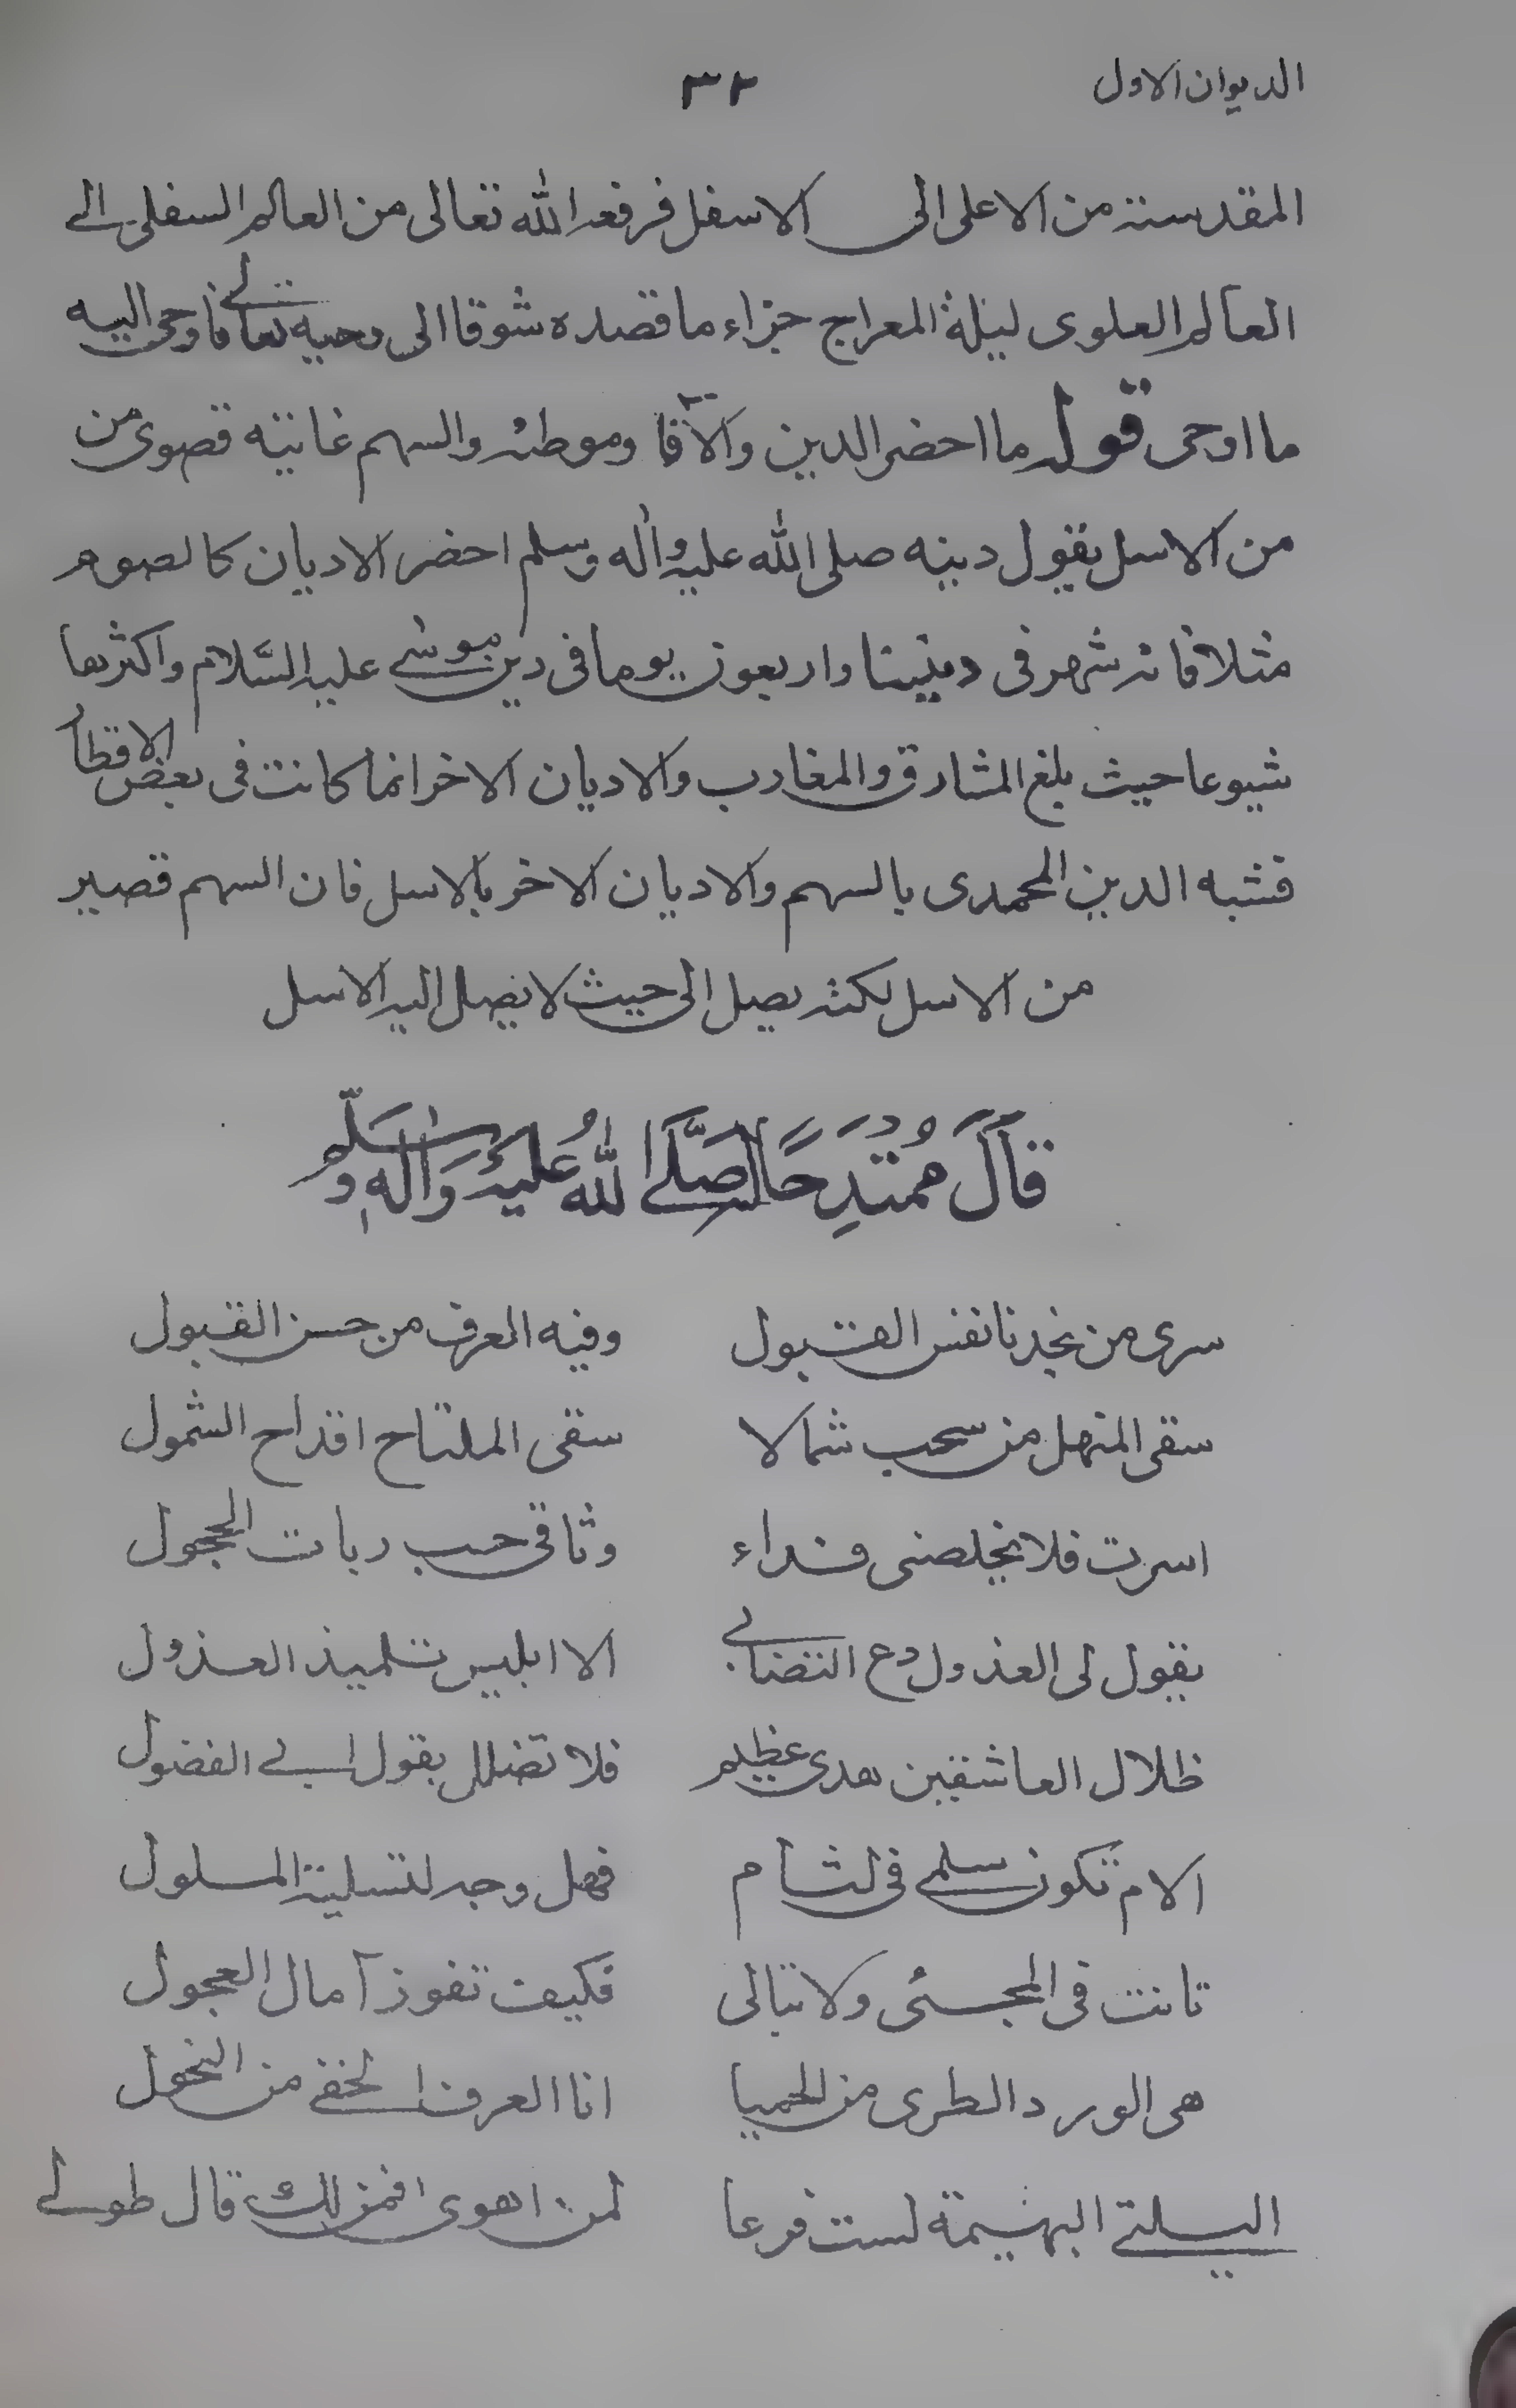 الديوان الاول ٣٢
المقدسة من الاعلى الى الاسفل فرفعه الله تعالى من العالم السفلى الى
العالم العلوى ليلة المعراج جزاء ما قصده شوقا الى وحيه تعالى فاوحى اليه
ما اوحى قوله ما احضر الدين والآفا وموطئه والسهم غانيته قصوى من
من الاسل يقول دينه صلى الله عليه واله وسلم احضر الاديان كالصوم
مثلا فانه شهر فى ديننا واربعون يوما فى دين موسى عليه السلام واكثرها
شيوعا حيث بلغ المشارق والمغارب والاديان الاخر انما كانت فى بعض الاقطار
فشبه الدين المحمدى بالسهم والاديان الاخر بالاسل فان السهم قصير
من الاسل لكنه يصل الى حيث لا يصل اليه الاسل
قَالَ مُمْتَدِحًا صَلَّى اللهُ عَلَيْهِ وَاٰلِهٖ وَسَلَّم
سرى من نجدنا نفس القبول وفيه العرف من حسن القبول
سقى المنهل من سحب شمالا سقى الملتاح اقداح الشمول
اسرت فلا يخلصنى فداء وثاقى حب ربات الحجول
يقول لى العذول دع التصابى الا ابليس تلميذ العذول
ظلال العاشقين هدى عظيم فلا تضلل بقول ابى الفضول
الام تكون سلمى فى لثام فهل وجه لتسلية المسلول
تانت فى المجئى ولا تبالى فكيف تفوز آمال العجول
هى الورد الطرى من الحميا انا العرف الخفى من النحول
البسلتى البهيمة لست فرعا لمن اهوى افمن لك قال طولى